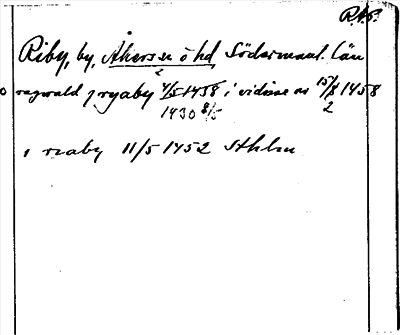 R.A.P.
Riby, by, Åkers sn o hd, Södermanl. län
ragwald j ryaby 4/5 1438 i vidisse av 15/8 1458
2
1430 8/5
2
i reaby 11/5 1452 Sthlm